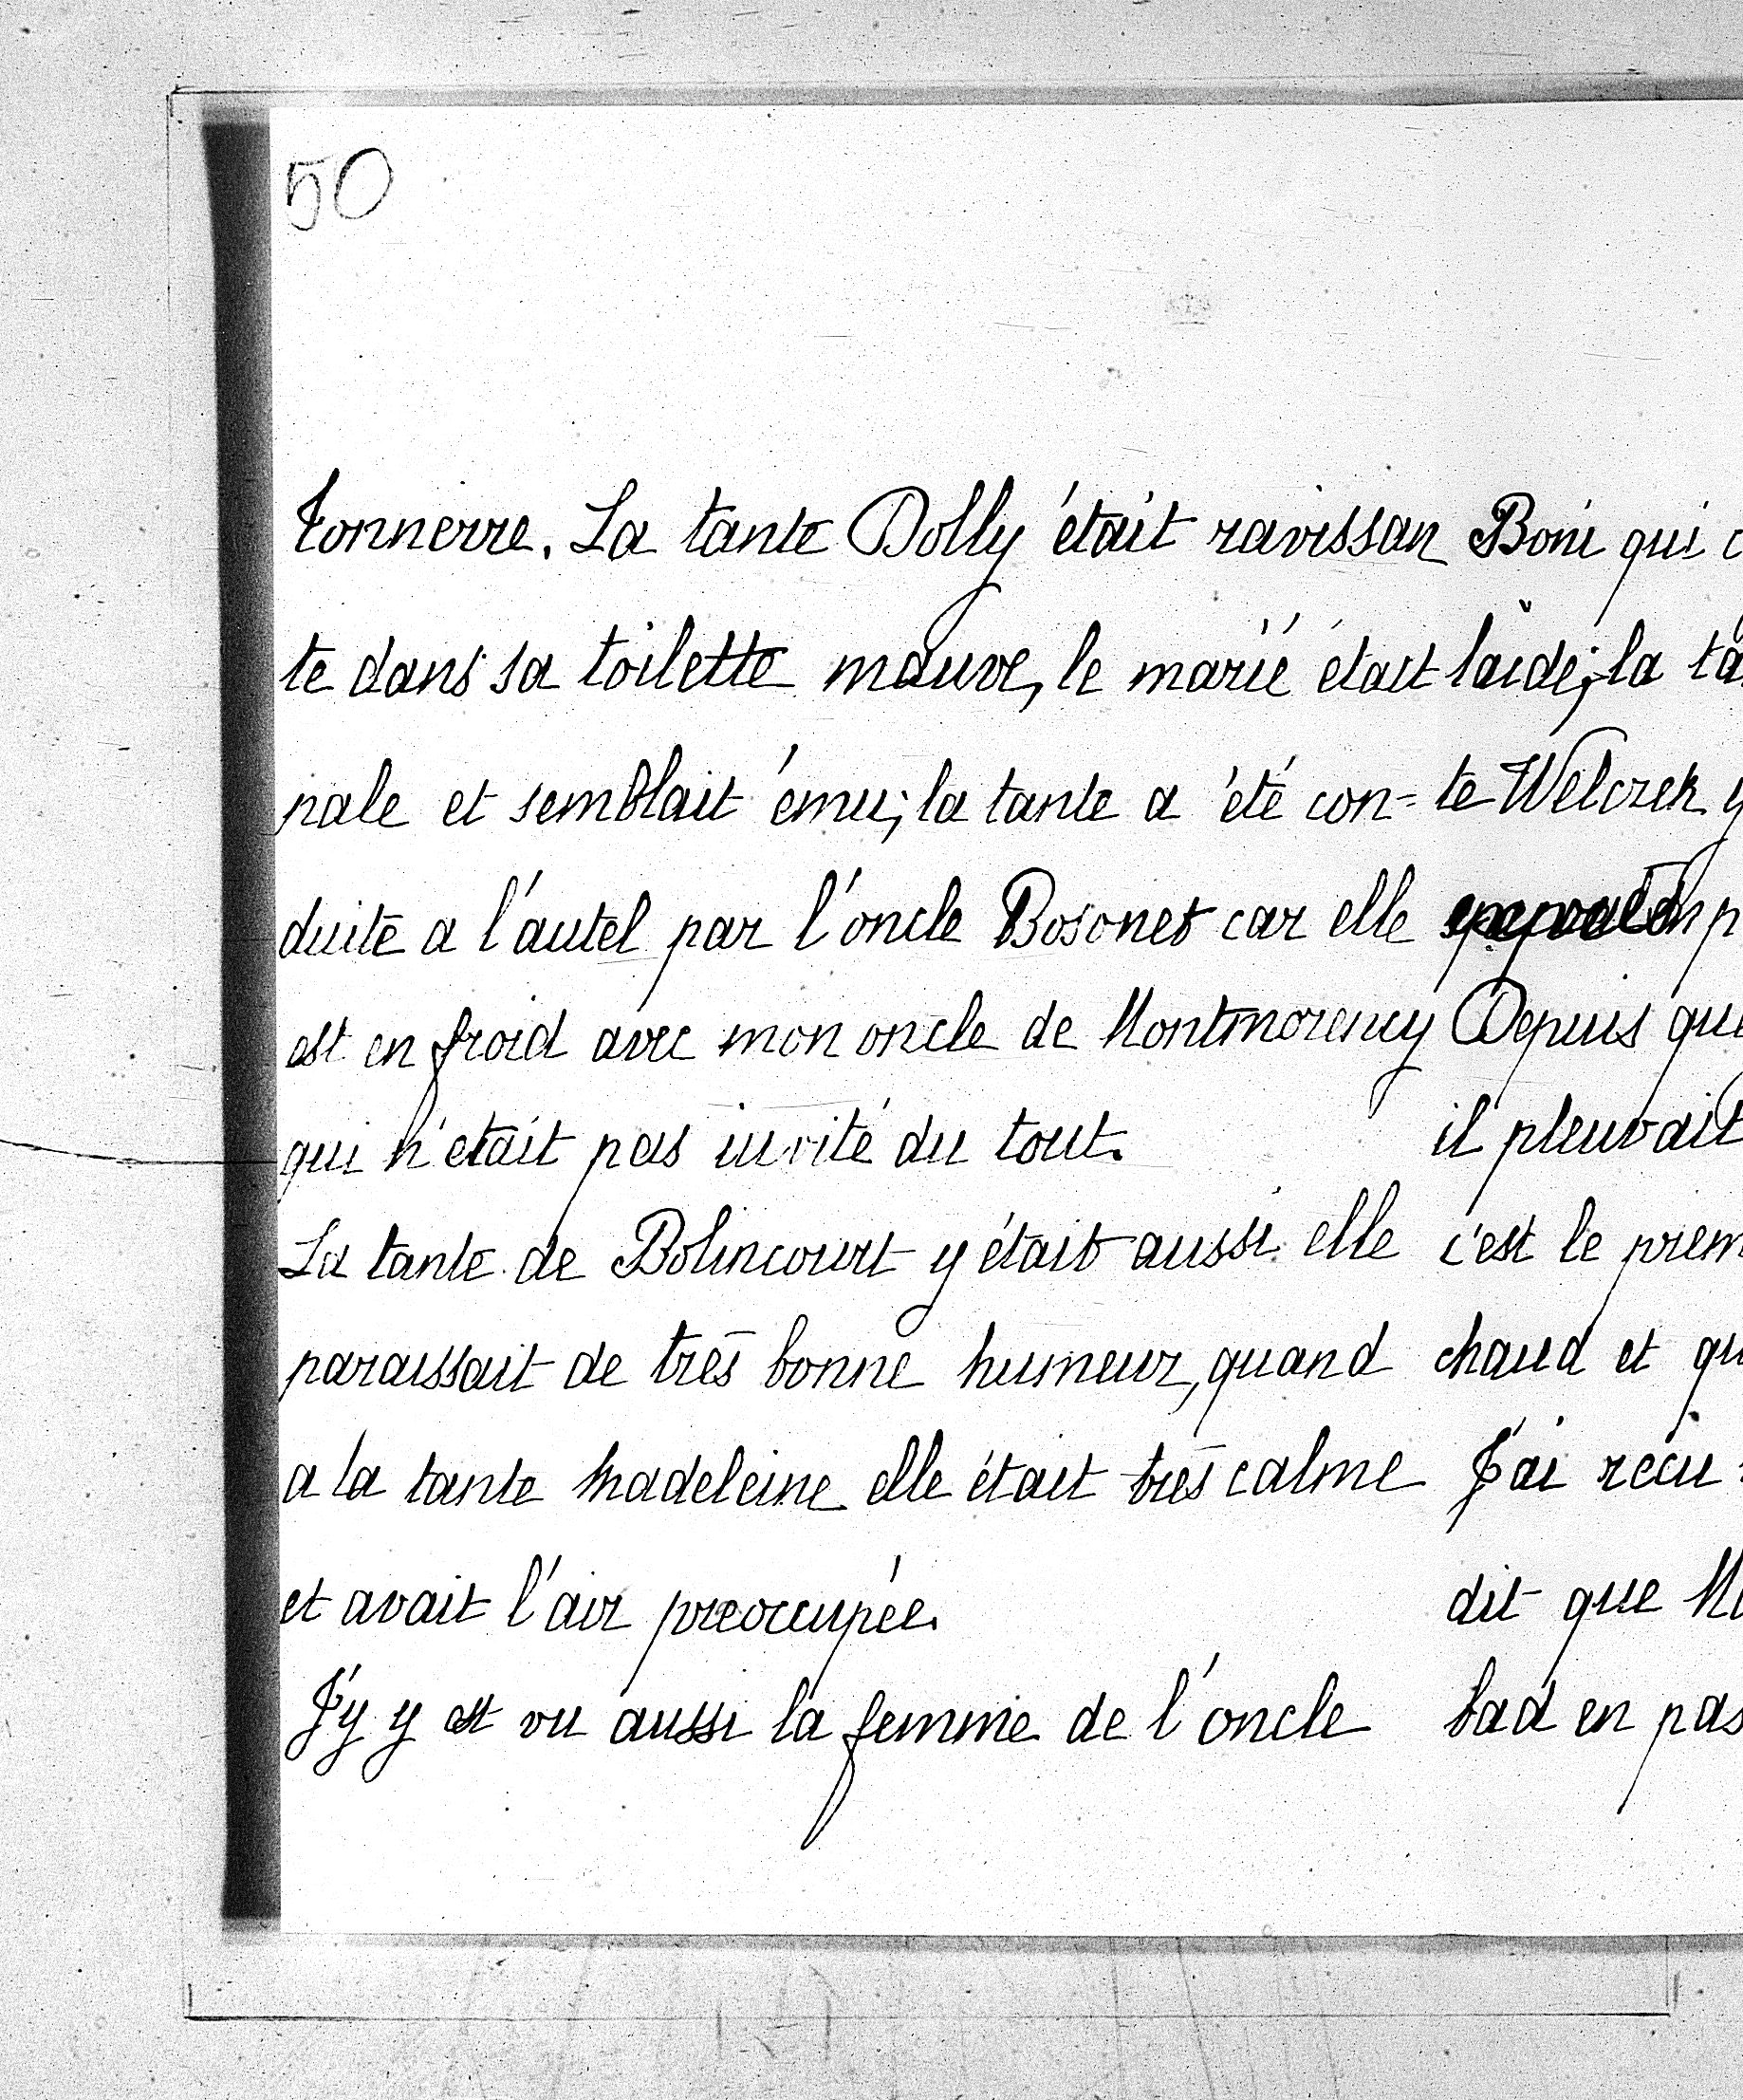 50
Tonnerre. La tante Dolly était ravissan
te dans sa toilette mauve, le marié était
pale et semblait ému; la tante a été con-
duite a l'autel par l'oncle Bosonet car elle
est en froid avec mon oncle de Montmorency
qui n'était pas invité du tout.
La tante de Bolincourt y était aussi elle
paraissait de très bonne humeur, quand
a la tante Madeleine elle était très calme
et avait l'air preoccupée.
J'y y est vu aussi la femme de l'oncle
Boni qui
laide; la
te Welczek
Depuis
il pleuvait
c'est le
chaud et
J'ai recu
dit que
bad en